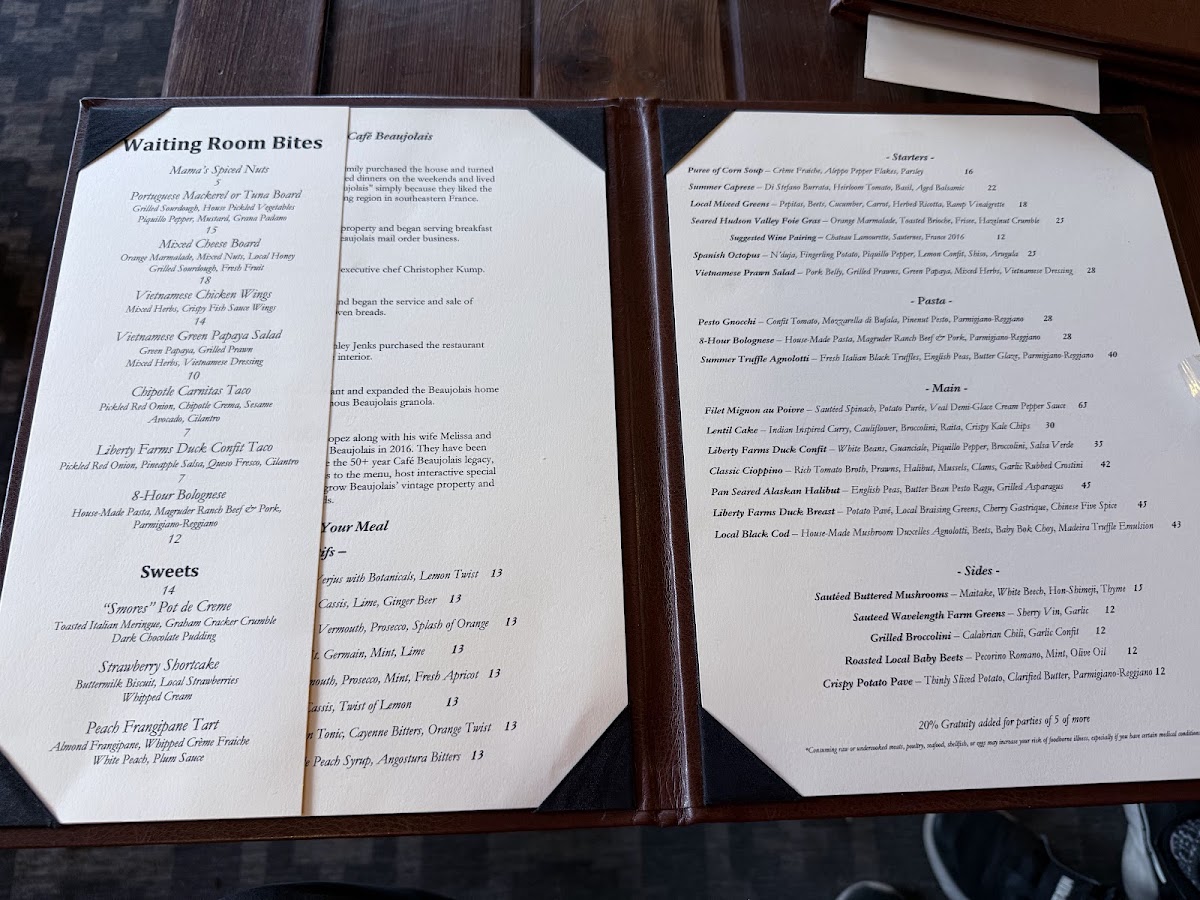 Waiting Room Bites
Mama's Spiced Nuts
5
Portuguese Mackerel or Tuna Board
Grilled Sourdough, House Pickled Vegetables
Piquillo Pepper, Mustard, Grana Padano
15
Mixed Cheese Board
Orange Marmalade, Mixed Nuts, Local Honey
Grilled Sourdough, Fresh Fruit
18
Vietnamese Chicken Wings
Mixed Herbs, Crispy Fish Sauce Wings
14
Vietnamese Green Papaya Salad
Green Papaya, Grilled Prawn
Mixed Herbs, Vietnamese Dressing
10
Chipotle Carnitas Taco
Pickled Red Onion, Chipotle Crema, Sesame
Avocado, Cilantro
7
Liberty Farms Duck Confit Taco
Pickled Red Onion, Pineapple Salsa, Queso Fresco, Cilantro
7
8-Hour Bolognese
House-Made Pasta, Magruder Ranch Beef & Pork,
Parmigiano-Reggiano
12
Sweets
14
"Smores" Pot de Creme
Toasted Italian Meringue, Graham Cracker Crumble
Dark Chocolate Pudding
Strawberry Shortcake
Buttermilk Biscuit, Local Strawberries
Whipped Cream
Peach Frangipane Tart
Almond Frangipane, Whipped Crème Fraiche
White Peach, Plum Sauce
Café Beaujolais
mily purchased the house and turned
ed dinners on the weekends and lived
ujolais" simply because they liked the
ng region in southeastern France.
property and began serving breakfast
eaujolais mail order business.
executive chef Christopher Kump.
nd began the service and sale of
ven breads.
nley Jenks purchased the restaurant
interior.
ant and expanded the Beaujolais home
nous Beaujolais granola.
opez along with his wife Melissa and
Beaujolais in 2016. They have been
e the 50+ year Café Beaujolais legacy,
s to the menu, host interactive special
grow Beaujolais' vintage property and
ls.
Your Meal
ifs –
erjus with Botanicals, Lemon Twist 13
Cassis, Lime, Ginger Beer 13
Vermouth, Prosecco, Splash of Orange 13
t. Germain, Mint, Lime 13
mouth, Prosecco, Mint, Fresh Apricot 13
Cassis, Twist of Lemon 13
n Tonic, Cayenne Bitters, Orange Twist 13
e Peach Syrup, Angostura Bitters 13
- Starters -
Puree of Corn Soup – Crème Fraiche, Aleppo Pepper Flakes, Parsley 16
Summer Caprese – Di Stefano Burrata, Heirloom Tomato, Basil, Aged Balsamic 22
Local Mixed Greens – Pepitas, Beets, Cucumber, Carrot, Herbed Ricotta, Ramp Vinaigrette 18
Seared Hudson Valley Foie Gras – Orange Marmalade, Toasted Brioche, Frisee, Hazelnut Crumble 25
Suggested Wine Pairing – Chateau Lamourette, Sauternes, France 2016 12
Spanish Octopus – N'duja, Fingerling Potato, Piquillo Pepper, Lemon Confit, Shiso, Arugula 25
Vietnamese Prawn Salad – Pork Belly, Grilled Prawns, Green Papaya, Mixed Herbs, Vietnamese Dressing 28
- Pasta -
Pesto Gnocchi – Confit Tomato, Mozzarella di Bufala, Pinenut Pesto, Parmigiano-Reggiano 28
8-Hour Bolognese – House-Made Pasta, Magruder Ranch Beef & Pork, Parmigiano-Reggiano 28
Summer Truffle Agnolotti – Fresh Italian Black Truffles, English Peas, Butter Glaze, Parmigiano-Reggiano 40
- Main -
Filet Mignon au Poivre – Sautéed Spinach, Potato Purée, Veal Demi-Glace Cream Pepper Sauce 65
Lentil Cake – Indian Inspired Curry, Cauliflower, Broccolini, Raita, Crispy Kale Chips 30
Liberty Farms Duck Confit – White Beans, Guanciale, Piquillo Pepper, Broccolini, Salsa Verde 35
Classic Cioppino – Rich Tomato Broth, Prawns, Halibut, Mussels, Clams, Garlic Rubbed Crostini 42
Pan Seared Alaskan Halibut – English Peas, Butter Bean Pesto Ragu, Grilled Asparagus 45
Liberty Farms Duck Breast – Potato Pavé, Local Braising Greens, Cherry Gastrique, Chinese Five Spice 45
Local Black Cod – House-Made Mushroom Duxelles Agnolotti, Beets, Baby Bok Choy, Madeira Truffle Emulsion 43
- Sides -
Sautéed Buttered Mushrooms – Maitake, White Beech, Hon-Shimeji, Thyme 15
Sauteed Wavelength Farm Greens – Sherry Vin, Garlic 12
Grilled Broccolini – Calabrian Chili, Garlic Confit 12
Roasted Local Baby Beets – Pecorino Romano, Mint, Olive Oil 12
Crispy Potato Pave – Thinly Sliced Potato, Clarified Butter, Parmigiano-Reggiano 12
20% Gratuity added for parties of 5 of more
*Consuming raw or undercooked meats, poultry, seafood, shellfish, or eggs may increase your risk of foodborne illness, especially if you have certain medical conditions